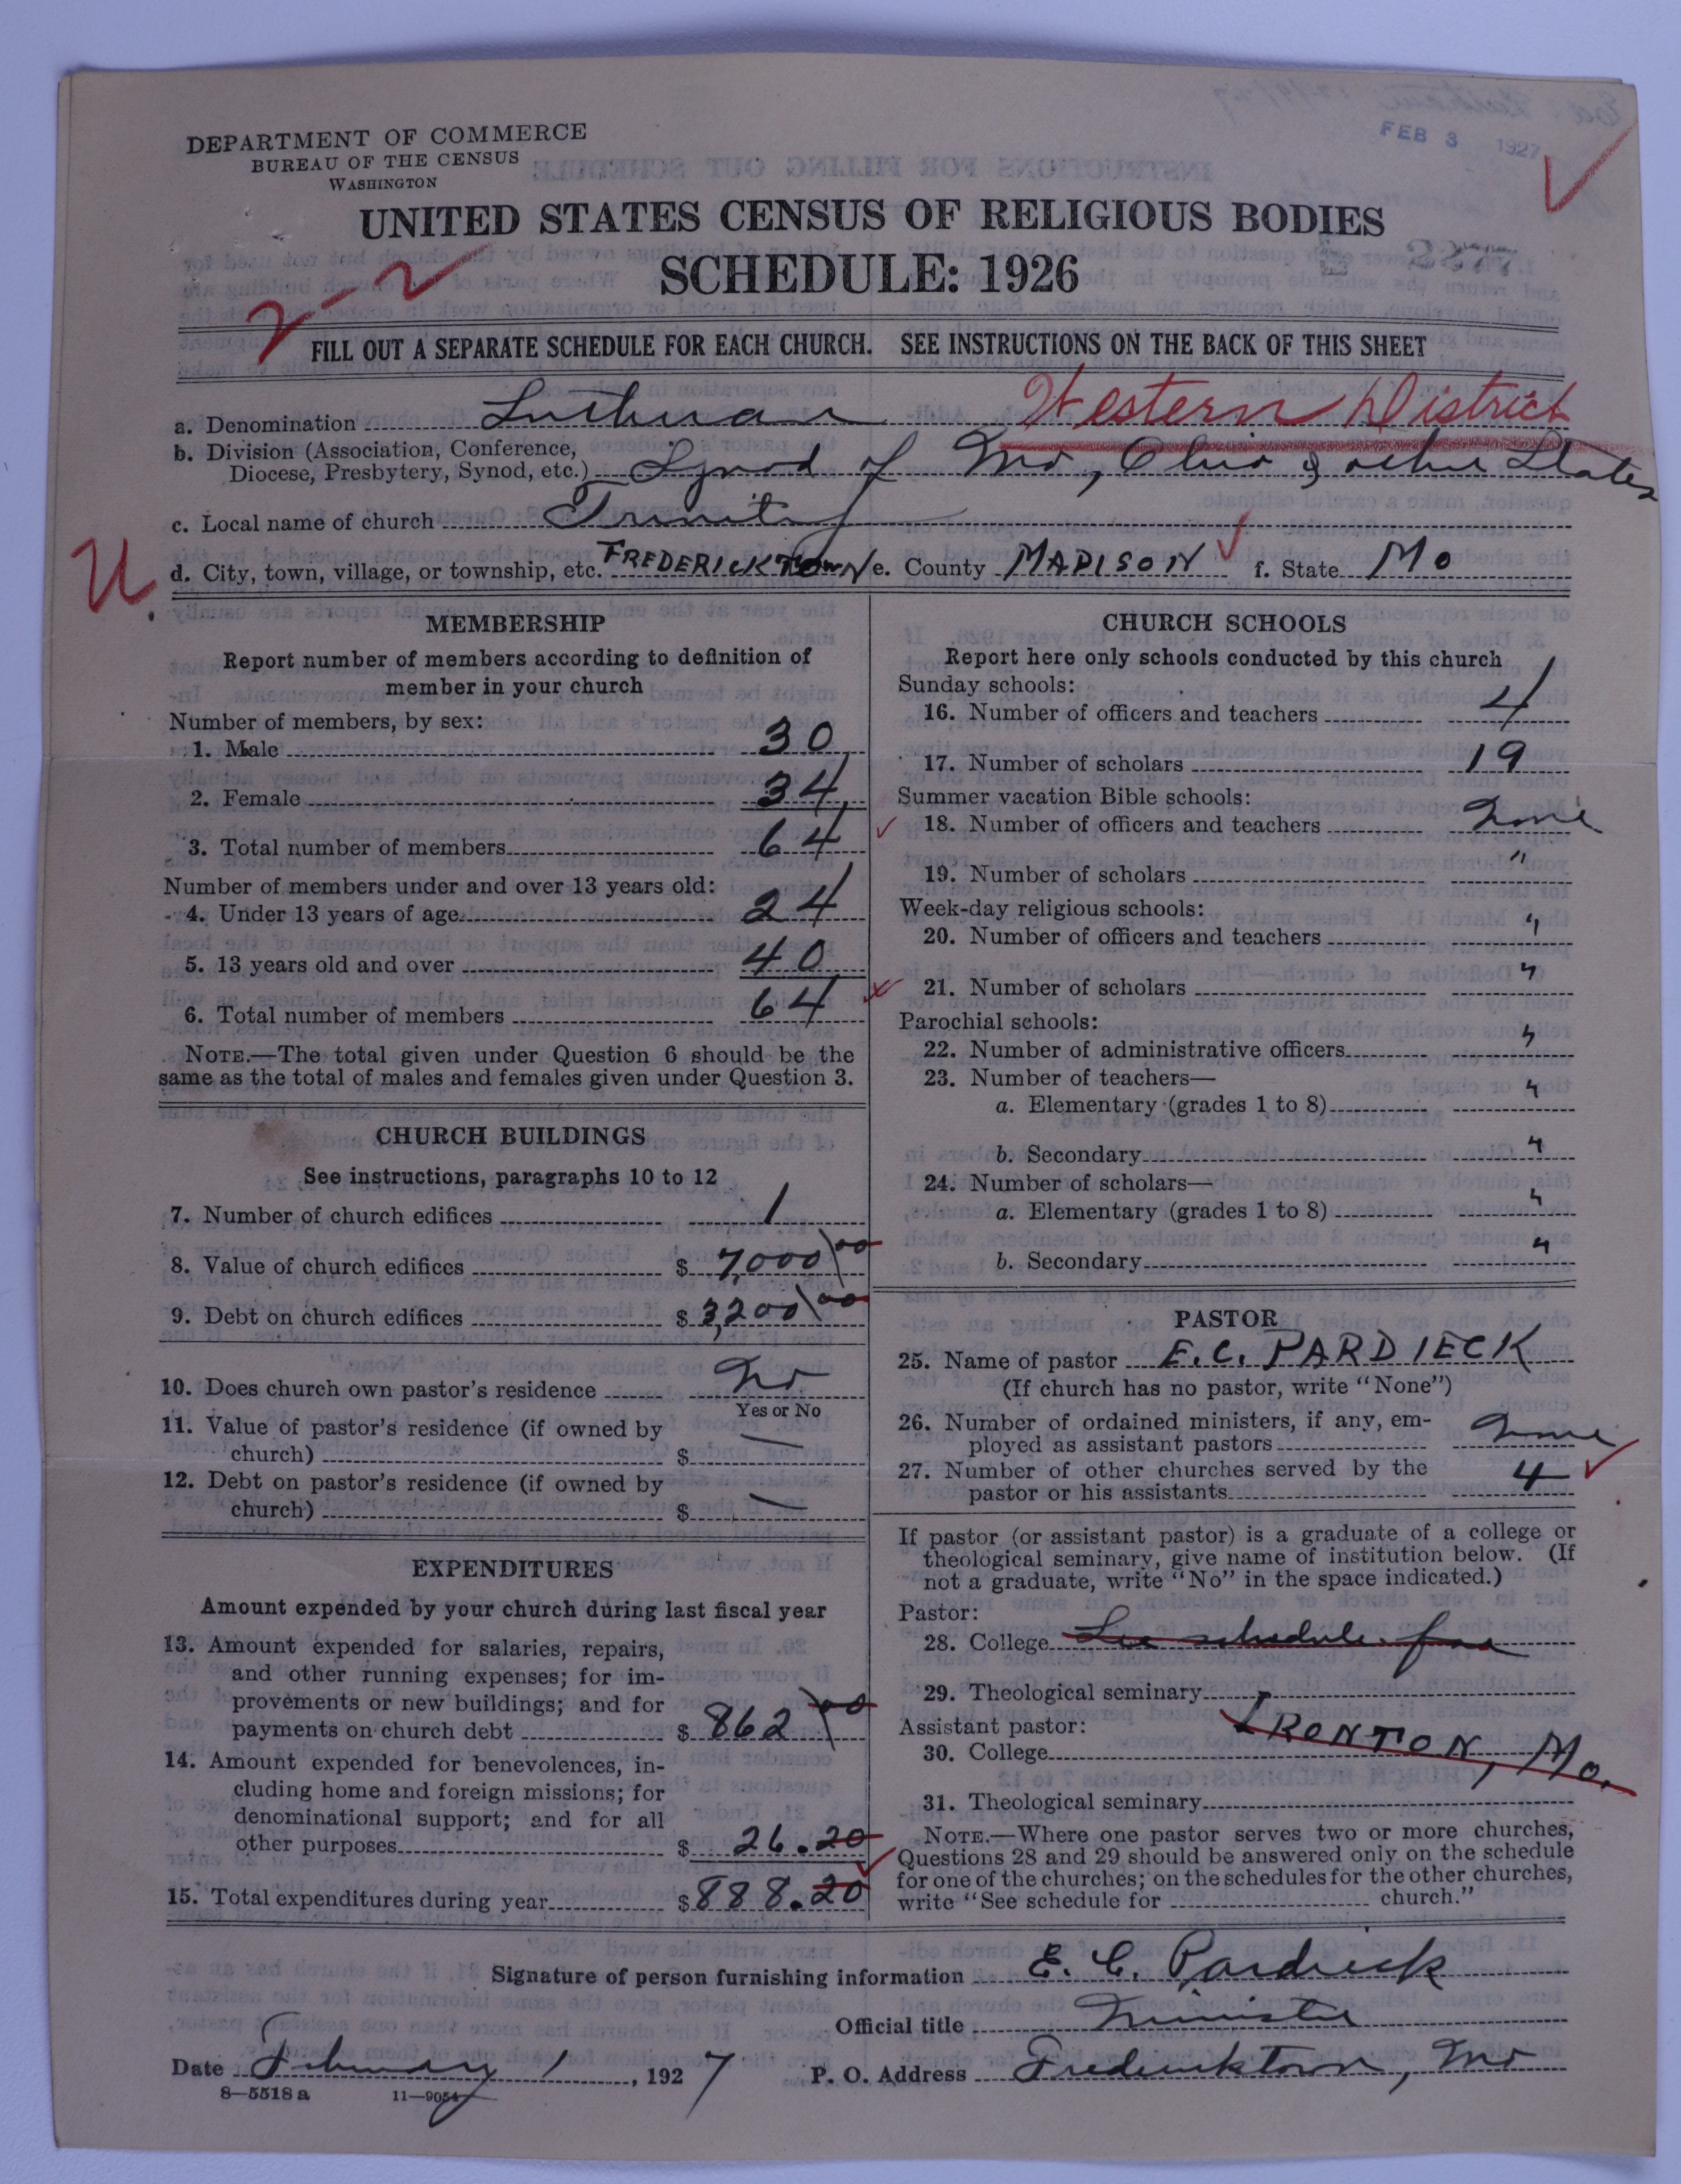 FEB 3 1927
DEPARTMENT OF COMMERCE
BUREAU OF THE CENSUS
WASHINGTON
UNITED STATES CENSUS OF RELIGIOUS BODIES
SCHEDULE: 1926
2-2
FILL OUT A SEPARATE SCHEDULE FOR EACH CHURCH. SEE INSTRUCTIONS ON THE BACK OF THIS SHEET
a. Denomination Lutheran Western District
b. Division (Association, Conference,
Diocese, Presbytery, Synod, etc.) Synod of Mo, Ohio & other States
c. Local name of church Trinity
U.
d. City, town, village, or township, etc. FREDERICKTOWN e. County MADISON f. State Mo
MEMBERSHIP
Report number of members according to definition of
member in your church
Number of members, by sex:
1. Male 30
2. Female 34
3. Total number of members 64
Number of members under and over 13 years old:
4. Under 13 years of age 24
5. 13 years old and over 40
6. Total number of members 64
NOTE.—The total given under Question 6 should be the
same as the total of males and females given under Question 3.
CHURCH BUILDINGS
See instructions, paragraphs 10 to 12
7. Number of church edifices 1
8. Value of church edifices $ 7,000 00
9. Debt on church edifices $ 3,200 00
10. Does church own pastor's residence No
Yes or No
11. Value of pastor's residence (if owned by
church) $ —
12. Debt on pastor's residence (if owned by
church) $ —
EXPENDITURES
Amount expended by your church during last fiscal year
13. Amount expended for salaries, repairs,
and other running expenses; for im-
provements or new buildings; and for
payments on church debt $ 862 00
14. Amount expended for benevolences, in-
cluding home and foreign missions; for
denominational support; and for all
other purposes $ 26.20
15. Total expenditures during year $ 888.20
CHURCH SCHOOLS
Report here only schools conducted by this church
Sunday schools:
16. Number of officers and teachers 4
17. Number of scholars 19
Summer vacation Bible schools:
18. Number of officers and teachers None
19. Number of scholars "
Week-day religious schools:
20. Number of officers and teachers "
21. Number of scholars "
Parochial schools:
22. Number of administrative officers "
23. Number of teachers—
a. Elementary (grades 1 to 8) "
b. Secondary "
24. Number of scholars—
a. Elementary (grades 1 to 8) "
b. Secondary "
PASTOR
25. Name of pastor E. C. PARDIECK
(If church has no pastor, write "None")
26. Number of ordained ministers, if any, em-
ployed as assistant pastors None
27. Number of other churches served by the
pastor or his assistants 4
If pastor (or assistant pastor) is a graduate of a college or
theological seminary, give name of institution below. (If
not a graduate, write "No" in the space indicated.)
Pastor:
28. College See schedule for
29. Theological seminary
Assistant pastor:
IRONTON, Mo.
30. College
31. Theological seminary
NOTE.—Where one pastor serves two or more churches,
Questions 28 and 29 should be answered only on the schedule
for one of the churches; on the schedules for the other churches,
write "See schedule for church."
Signature of person furnishing information E. C. Pardieck
Official title Minister
Date February 1, 1927 P. O. Address Fredericktown, Mo
8—5518 a 11—9054